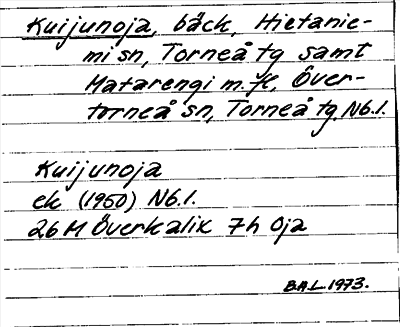 Kuijunoja, bäck, Hietanie-
mi sn, Torneå tg samt
Matarengi m.fl, Över-
torneå sn, Torneå tg. Nb.l.
Kuijunoja
ek (1950) Nb.l.
26 M Överkalix 7h Oja
B.A.L. 1973.